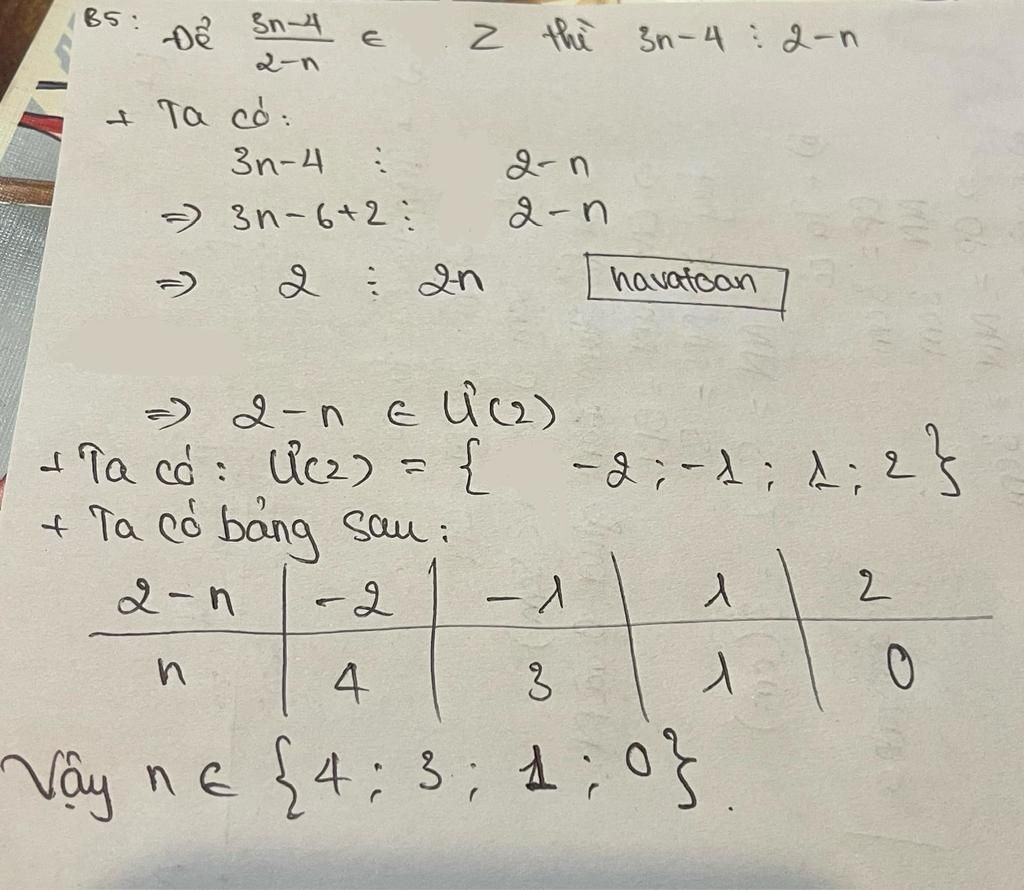 B5: Để \frac{3n-4}{2-n} ∈ Z thì 3n-4 ⋮ 2-n
+ Ta có:
3n-4 ⋮ 2-n
=> 3n-6+2 ⋮ 2-n
=> 2 ⋮ 2-n
havatoan
=> 2-n ∈ Ư(2)
+ Ta có: Ư(2) = { -2 ; -1 ; 1 ; 2 }
+ Ta có bảng sau:
2-n | -2 | -1 | 1 | 2
n | 4 | 3 | 1 | 0
Vậy n ∈ { 4 ; 3 ; 1 ; 0 }.